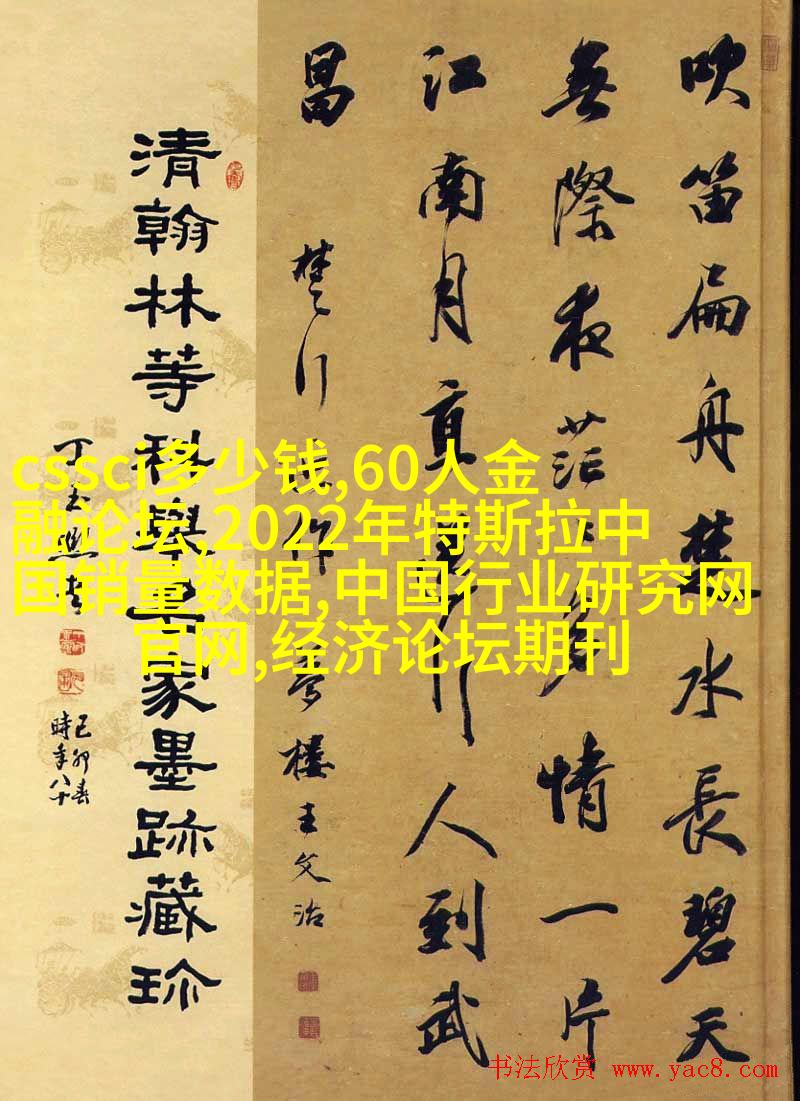 吹笛扁舟楚水長碧天
無際夜茫〻多情一片
江南月直行人到武
昌 楚行作 夢樓王文治
清翰林等科舉家墨跡藏珍
己卯春
時年八十
cssci多少钱,60人金
融论坛,2022年特斯拉中
国销量数据,中国行业研究网
官网,经济论坛期刊
书法欣赏 www.yac8.com